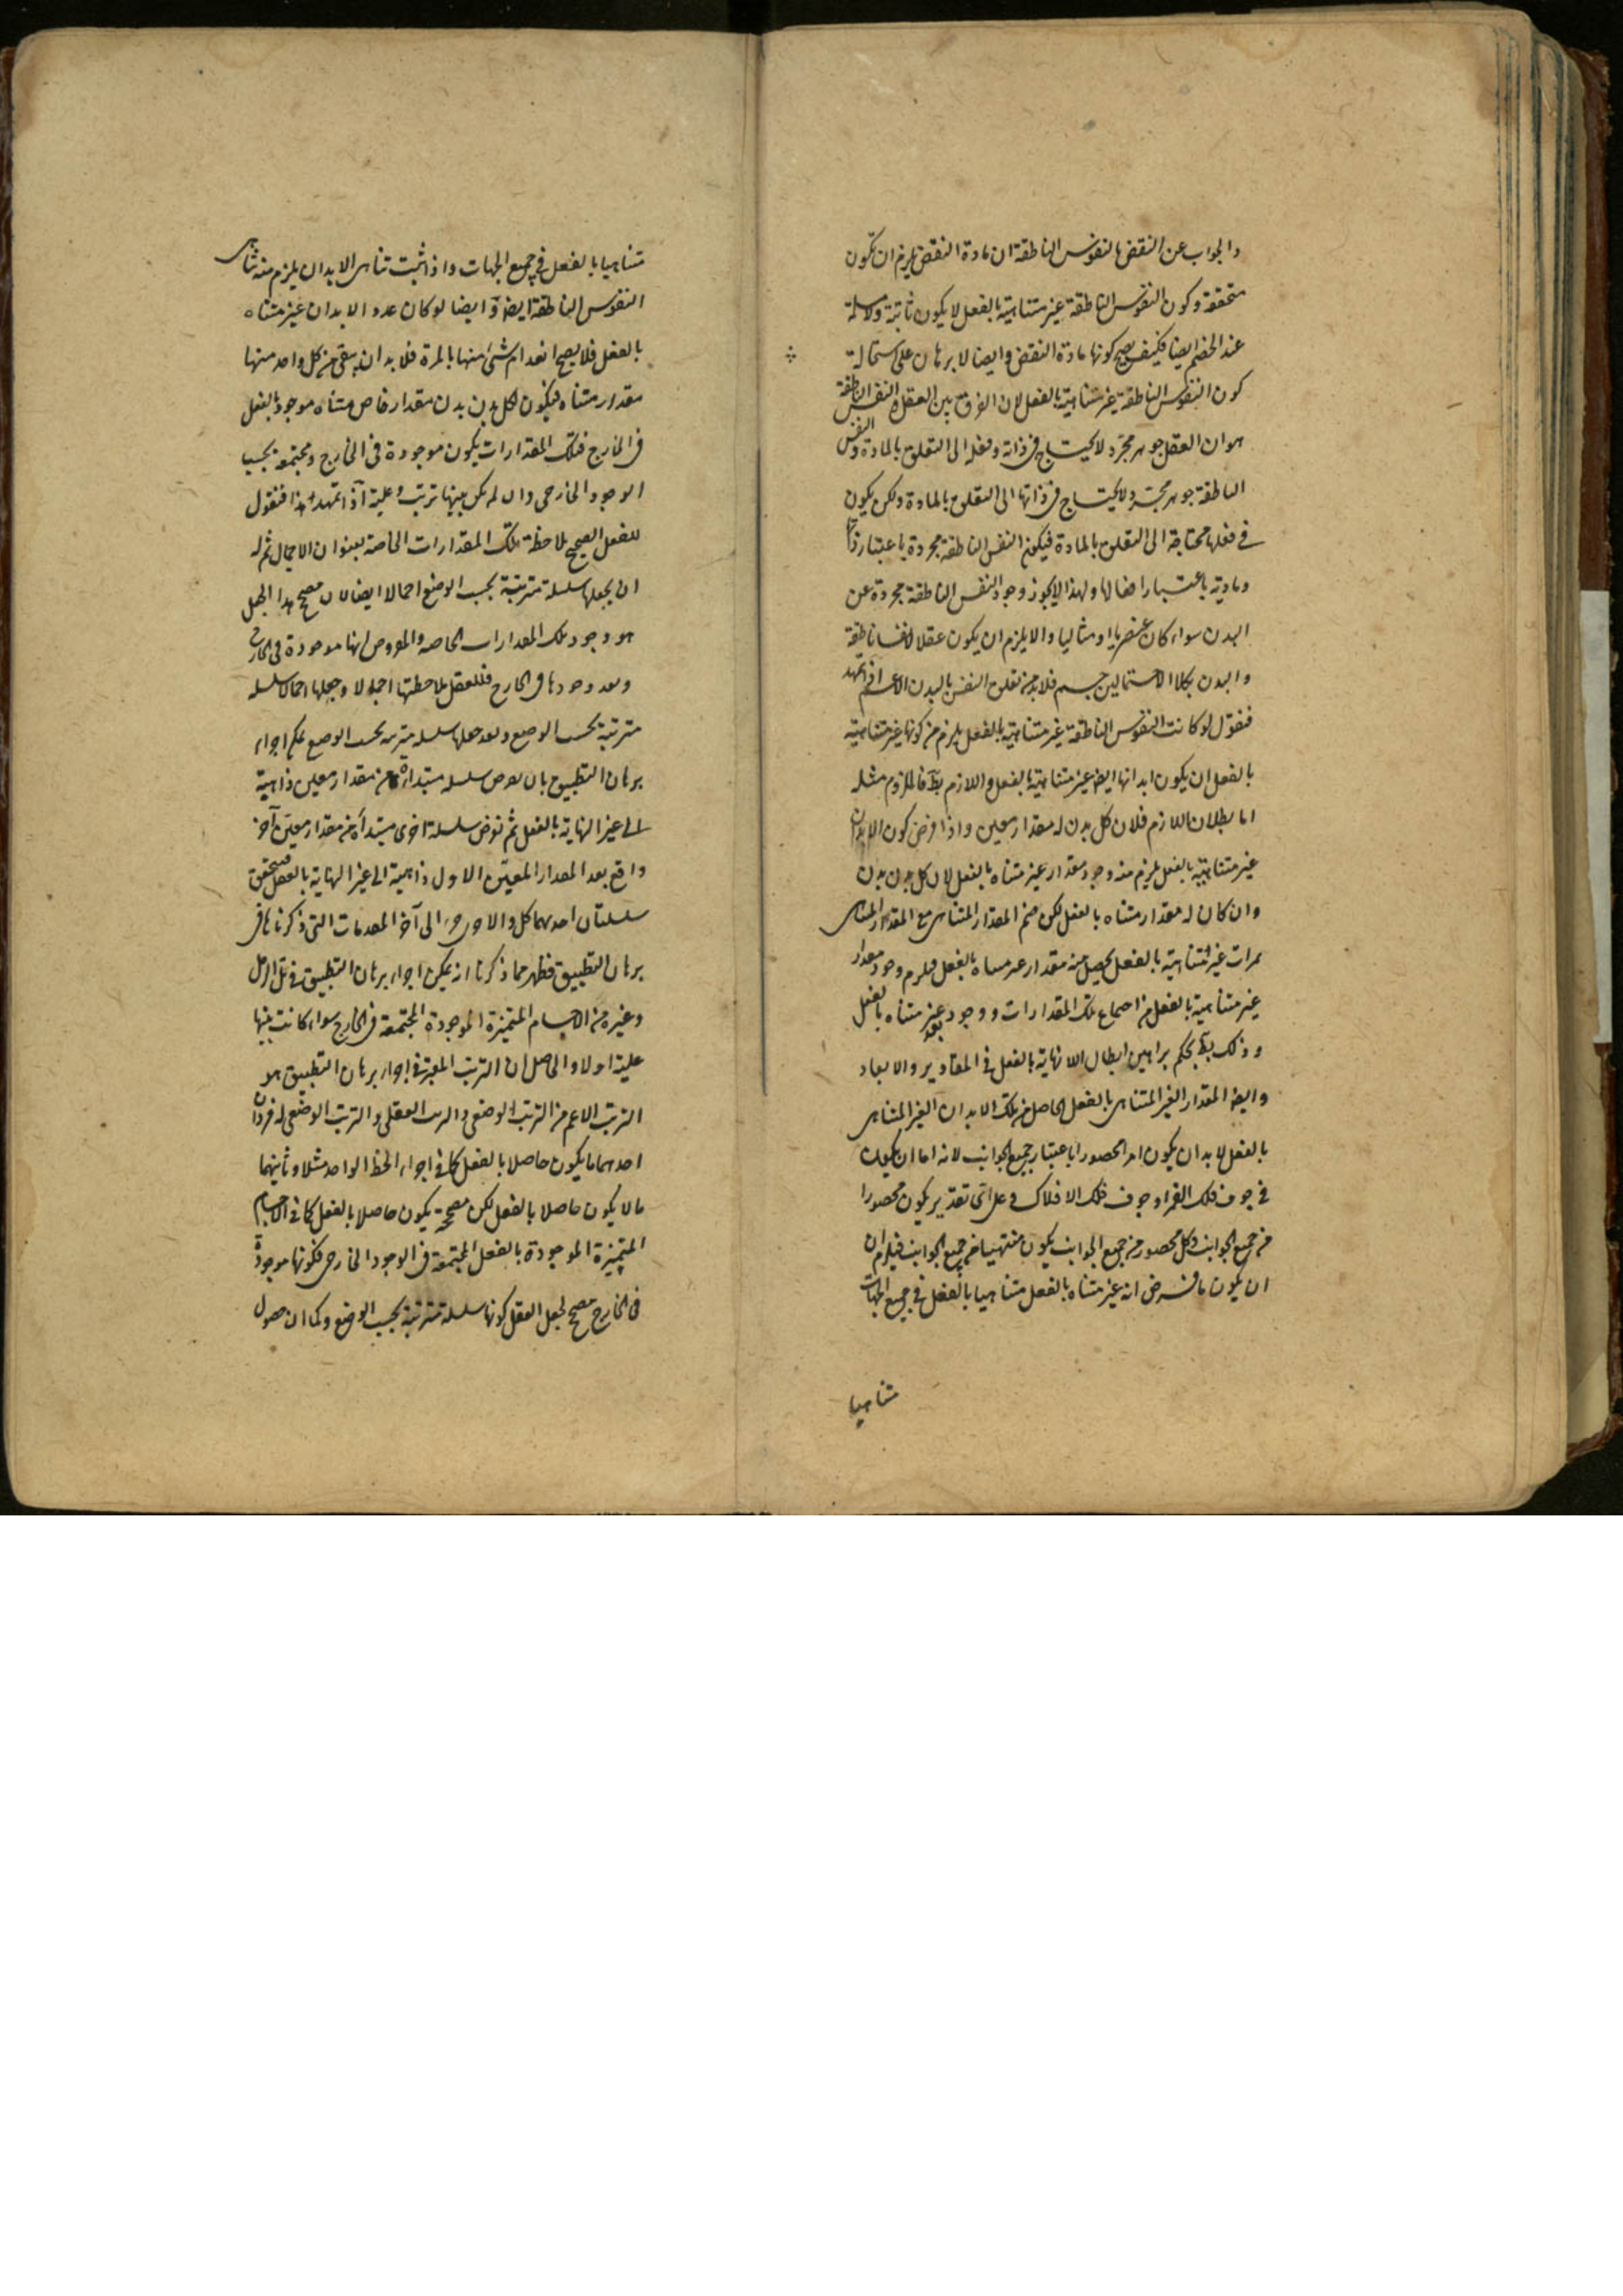 والجواب عن النقض بالنفوس الناطقة ان مادة النقض يلزم ان تكون
متحققة وكون النفوس الناطقة غير متناهية بالفعل لا يكون ثابتة ولا مسلمة
عند الخصم ايضا فكيف يصح كونها مادة النقض وايضا لا برهان على استحالة
كون النفوس الناطقة غير متناهية بالفعل لان الفرق بين العقل والنفس الناطقة
هو ان العقل جوهر مجرد لا يحتاج في ذاته وفعله الى التعلق بالمادة والنفس
الناطقة جوهر مجرد ولا يحتاج في ذاتها الى التعلق بالمادة ولكن يكون
في فعلها محتاجة الى التعلق بالمادة فيكون النفس الناطقة مجردة باعتبار ذاتها
ومادية باعتبار افعالها ولهذا لا يجوز وجود النفس الناطقة مجردة عن
البدن سواء كان عنصريا او مثاليا والا يلزم ان يكون عقلا لا نفسا ناطقة
والبدن بكلا الاحتمالين جسم فلا بد من تعلق النفس بالبدن الاعم اذا تمهد
فنقول لو كانت النفوس الناطقة غير متناهية بالفعل يلزم من كونها غير متناهية
بالفعل ان يكون ابدانها ايضا غير متناهية بالفعل واللازم بط فالملزوم مثله
اما بطلان اللازم فلان كل بدن له مقدار معين واذا فرض كون الابدان
غير متناهية بالفعل يلزم منه وجود مقدار غير متناه بالفعل لان كل بدن بدن
وان كان له مقدار متناه بالفعل لكن ضم المقدار المتناهى مع المقدار المتناهى
بمرات غير متناهية بالفعل يحصل منه مقدار غير متناه بالفعل فيلزم وجود مقدار
غير متناهية بالفعل من اجتماع تلك المقدارات ووجود بعد غير متناه بالفعل
وذلك بط بحكم براهين ابطال اللانهاية بالفعل في المقادير والابعاد
وايضا المقدار الغير المتناهى بالفعل الحاصل من تلك الابدان الغير المتناهى
بالفعل لا بد ان يكون امرا محصورا باعتبار جميع الجوانب لانه اما ان يكون
في جوف فلك القمر او جوف فلك الافلاك وعلى اى تقدير يكون محصورا
من جميع الجوانب وكل محصور من جميع الجوانب يكون منتهيا من جميع الجوانب فيلزم ان
ان يكون ما فرض انه غير متناه بالفعل متناهيا بالفعل في جميع الجهات
متناهيا
متناهيا بالفعل في جميع الجهات واذا ثبت تناهى الابدان يلزم منه تناهى
النفوس الناطقة ايضا وايضا لو كان عدد الابدان غير متناه
بالفعل فلا يصح انعدام شئ منها بالمرة فلا بد ان يبقى من كل واحد منها
مقدار متناه فيكون لكل بدن بدن مقدار خاص متناه موجود بالفعل
فى الخارج فتلك المقدارات يكون موجودة فى الخارج ومجتمعة بحسب
الوجود الخارجى وان لم يكن بينها ترتب وعلية اذا تمهد هذا فنقول
للعقل الصحيح ملاحظة تلك المقدارات الخاصة بعنوان الاجمال ثم له
ان يجعلها سلسلة مترتبة بحسب الوضع اجمالا ايضا لان مصحح هذا الجعل
هو وجود تلك المقدارات الخاصة والمفروض انها موجودة فى الخارج
وبعد وجودها فى الخارج فللعقل ملاحظتها اجمالا وجعلها اجمالا سلسلة
مترتبة بحسب الوضع وبعد جعلها سلسلة مترتبة بحسب الوضع يمكن اجراء
برهان التطبيق بان نفرض سلسلة مبتدأة من مقدار معين ذاهبة
الى غير النهاية بالفعل ثم نفرض سلسلة اخرى مبتدأة من مقدار معين آخر
واقع بعد المقدار المعين الاول ذاهبة الى غير النهاية بالفعل فيتحقق
سلسلتان احدهما كل والاخرى جزء الى آخر المقدمات التى ذكرناها فى
برهان التطبيق فظهر مما ذكرنا انه يمكن اجراء برهان التطبيق فى تل الرمل
وغيره من الاجسام المتميزة الموجودة المجتمعة فى الخارج سواء كانت بينها
علية اولا والحاصل ان الترتب المعتبر فى اجراء برهان التطبيق هو
الترتب الاعم من الترتب الوضعى والترتب العقلى والترتب الوضعى له فردان
احدهما ما يكون حاصلا بالفعل كما فى اجزاء الخط الواحد مثلا وثانيهما
ما لا يكون حاصلا بالفعل لكن مصححه يكون حاصلا بالفعل كما فى الاجسام
المتميزة الموجودة بالفعل المجتمعة فى الوجود الخارجى فكونها موجودة
فى الخارج مصحح لجعل العقل كونها سلسلة مترتبة بحسب الوضع وكما ان حصول